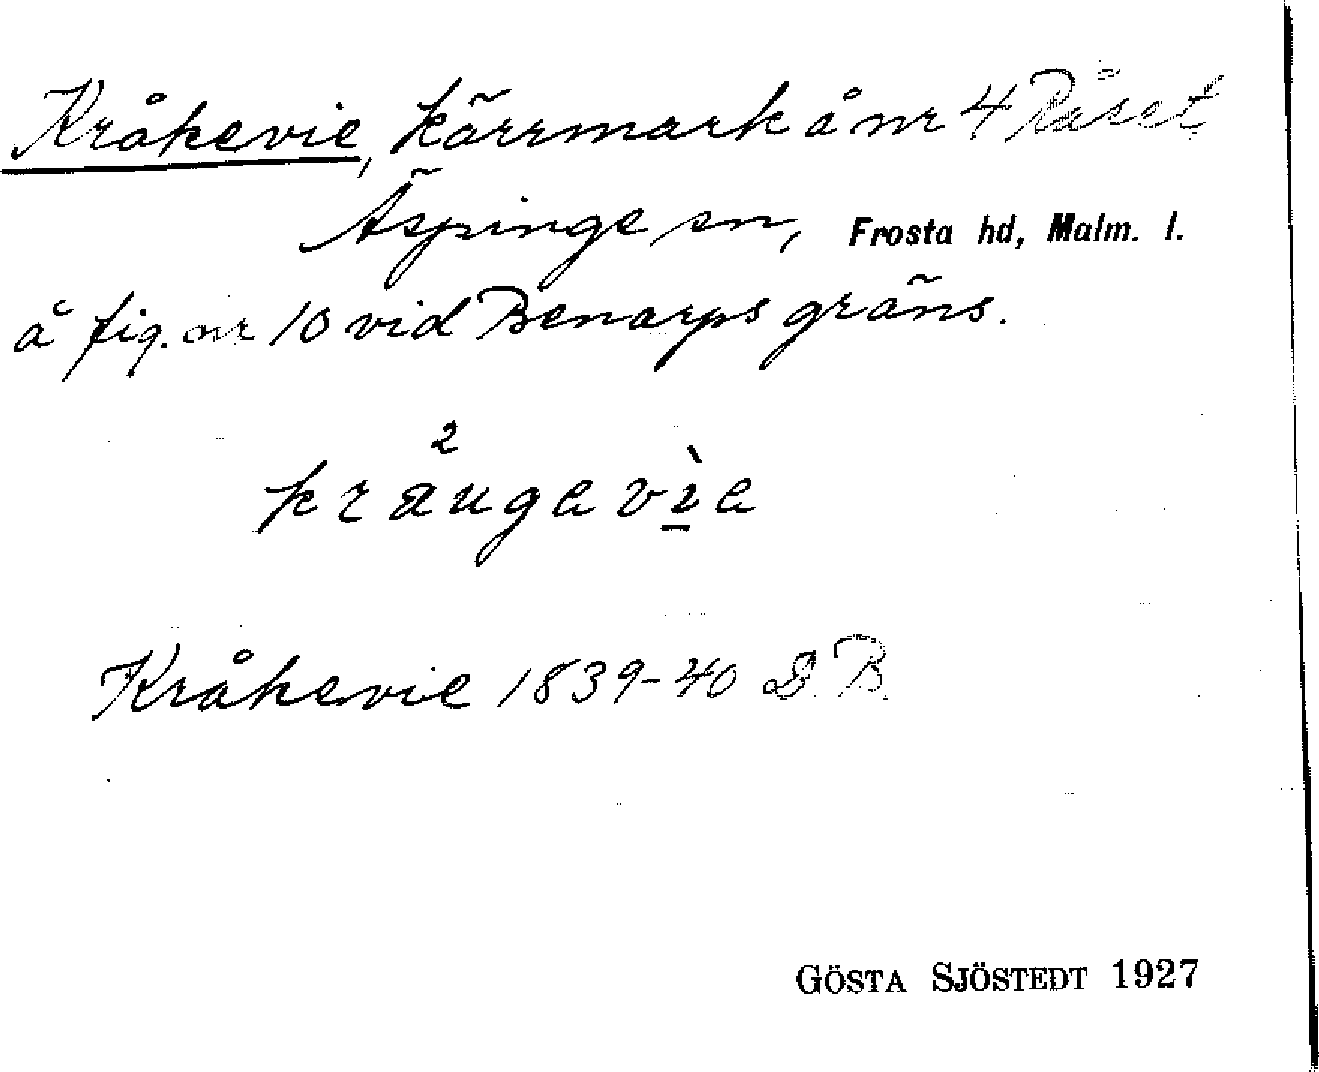 Kråkevie, kärrmark å nr 4 Råset
Äspinge sn, Frosta hd, Malm. l.
å fig. nr 10 vid Benarps gräns.
2
kraugavìa
Kråkevie 1839-40 D.B.
GÖSTA SJÖSTEDT 1927